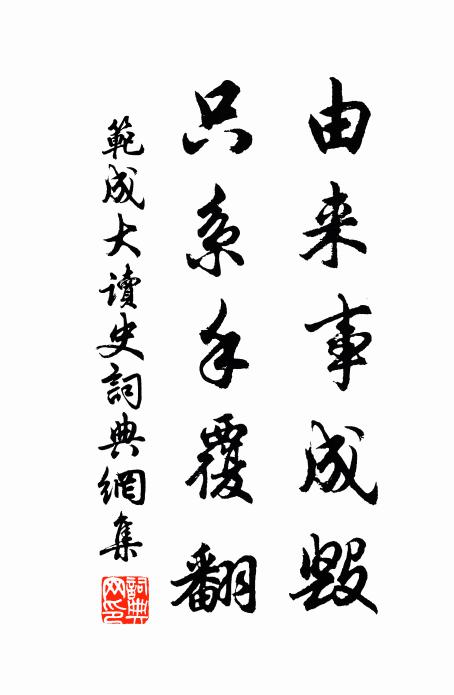 由来事成毀
只系手覆翻
範成大讀史詞典網集
詞典網印